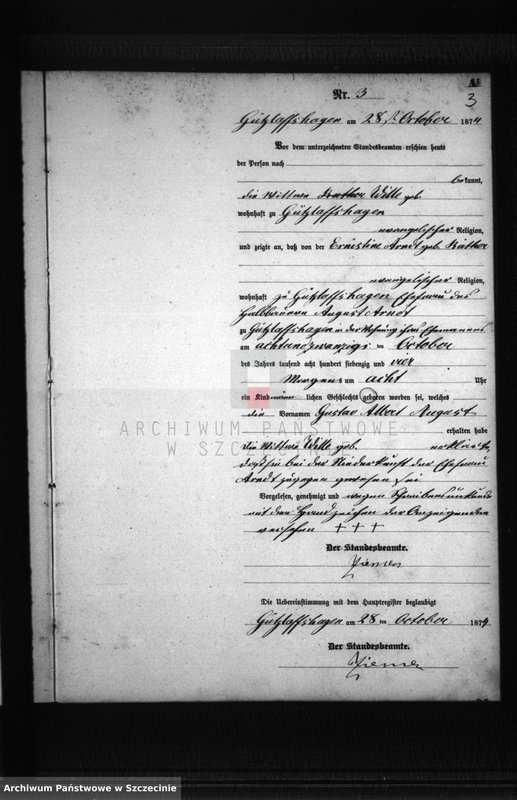 A
3
Nr. 3
Gützlaffshagen am 28 t October 1874
Vor dem unterzeichneten Standesbeamten erschien heute
der Person nach
bekannt,
die Wittwe Witte geb.
wohnhaft zu Gützlaffshagen
evangelischer Religion,
und zeigte an, daß von der Ernestine Arndt geb.
evangelischer Religion,
wohnhaft zu Gützlaffshagen Ehefrau des
Halbbauern August Arndt
zu Gützlaffshagen in der Wohnung ihres Ehemannes
am achtundzwanzigs ten October
des Jahres tausend acht hundert siebenzig und vier
Morgens um acht Uhr
ein Kind männ lichen Geschlechts geboren worden sei, welches
die Vornamen Gustav Albert August
erhalten habe
Die Wittwe Witte geb. erklärte,
daß sie bei der Niederkunft der Ehefrau
Arndt zugegen gewesen sei
Vorgelesen, genehmigt und wegen Schreibensunkunde
mit dem Handzeichen der Anzeigenden
versehen + + +
Der Standesbeamte.
Die Uebereinstimmung mit dem Hauptregister beglaubigt
Gützlaffshagen am 28 ten October 1874
Der Standesbeamte.
ARCHIWUM PAŃSTWOWE
W SZCZECINIE
Archiwum Państwowe w Szczecinie